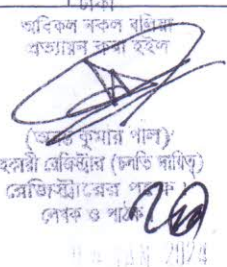 ঢাকা
অবিকল নকল বলিয়া
প্রত্যায়ন করা হইল
কুমার পাল)
সহকারী রেজিস্ট্রার (চলতি দায়িত্ব)
রেজিস্ট্রারের পক্ষে
লেখক ও পাঠক
2024